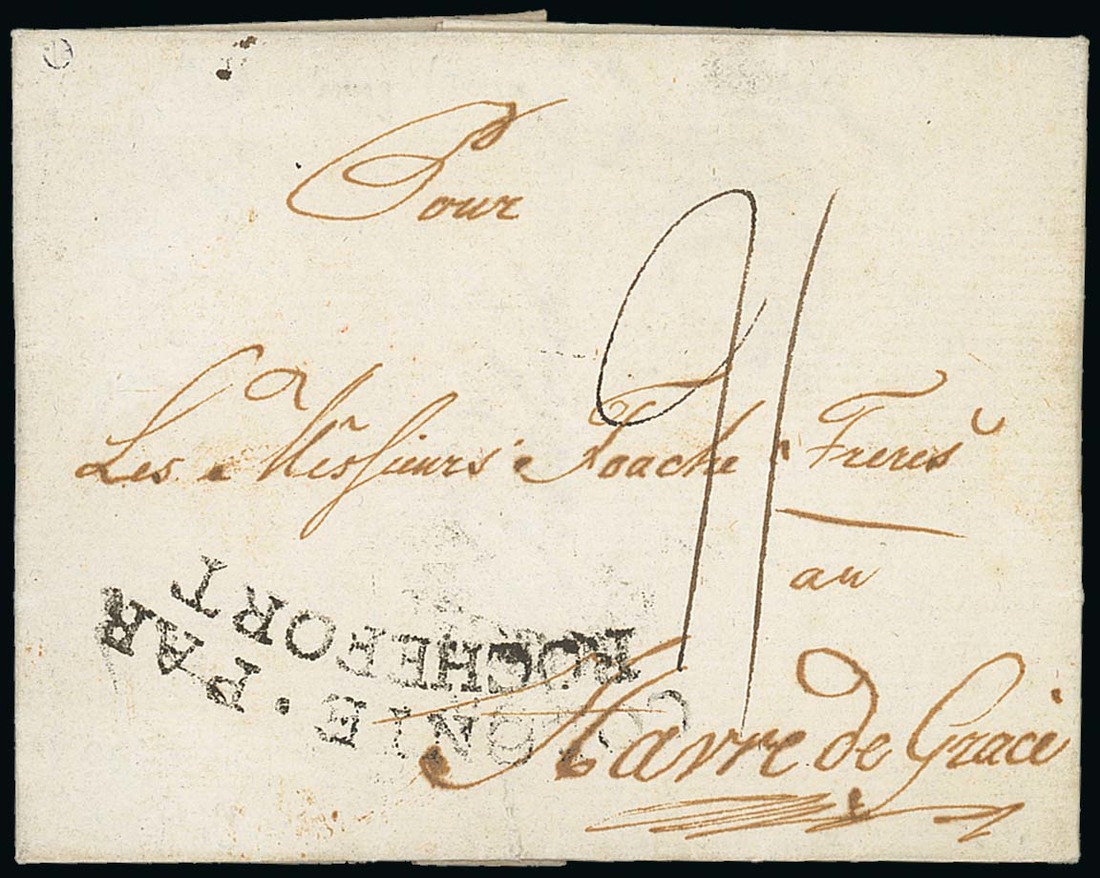 Pour
21
Les Messieurs Foache Freres
au
Havre de Grace
COLONIE. PAR
ROCHEFORT